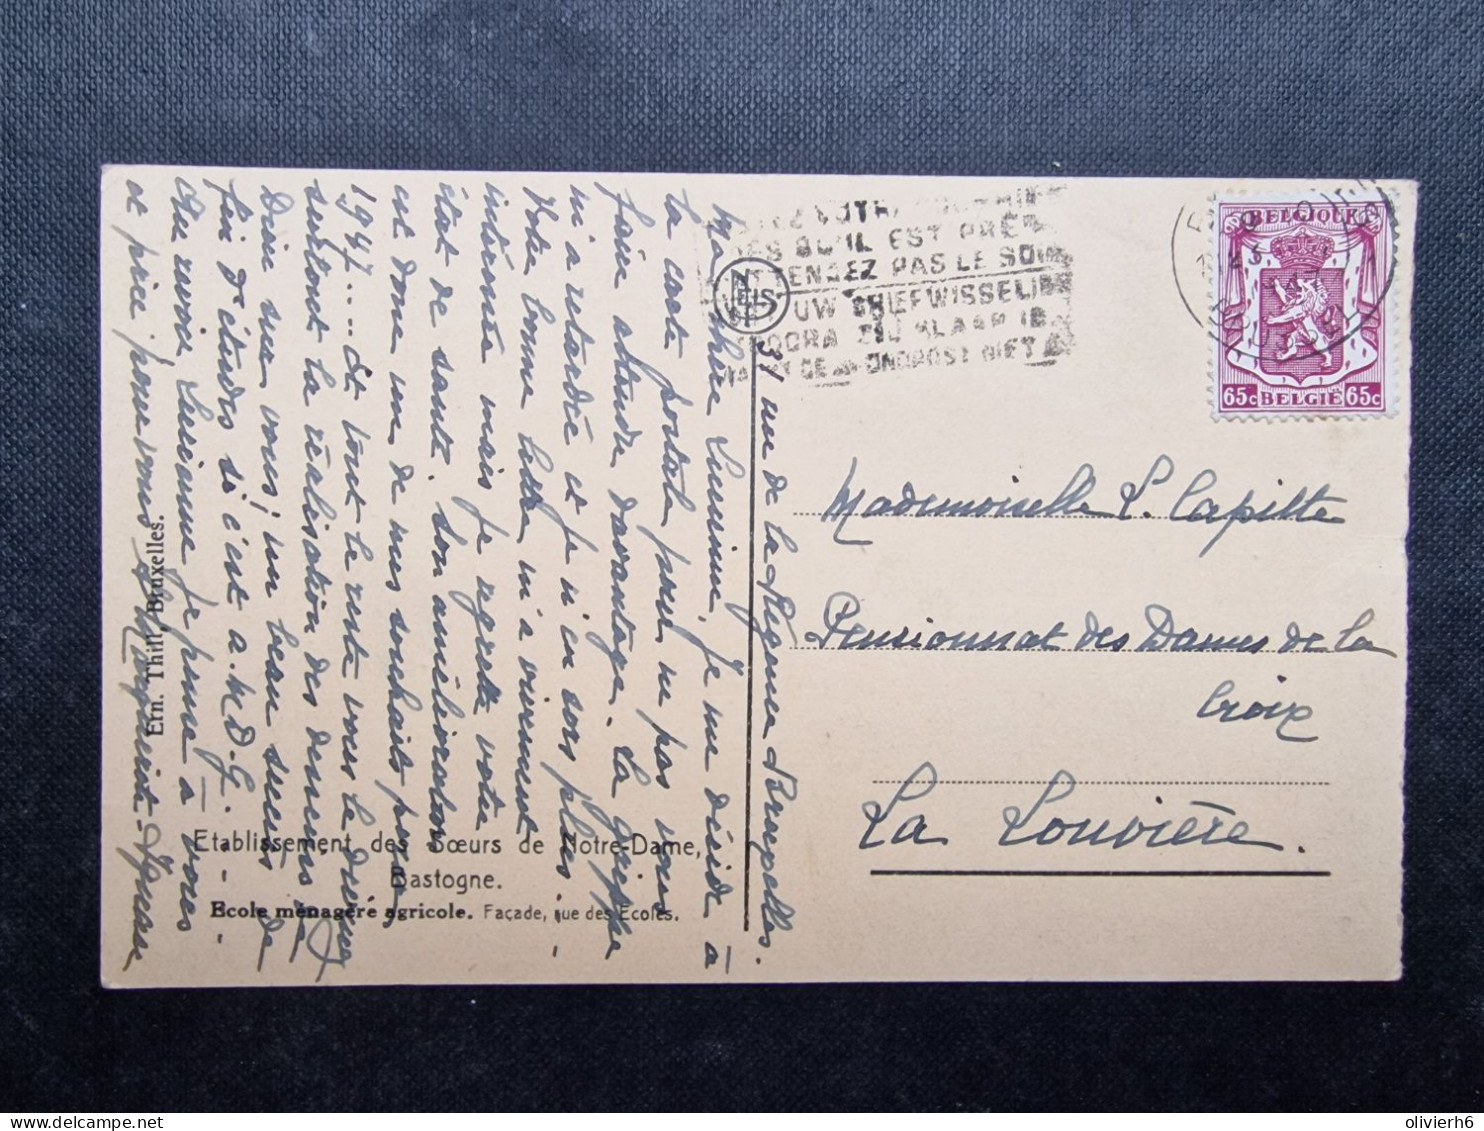 Ma chère Lucienne, je me décide à
la carte postale pour ne pas vous
faire attendre davantage. La grippe
m'a retardée et je n'en sors plus.
Votre bonne lettre m'a vivement
intéressée mais je regrette votre
état de santé. Son amélioration
est donc un de mes souhaits pour
1947.... Et tout le reste vous le
surtout la réalisation des desseins de
Dieu sur vous! un beau succès de
fin d'études si c'est A.M.D.G.
Au revoir, Lucienne je pense à vous
et prie pour vous. Marguerite-Ignace
31 rue de la Régence Bruxelles.
Ern. Thill, Bruxelles.
Etablissement des Sœurs de Notre-Dame,
Bastogne.
Ecole ménagère agricole. Façade, rue des Ecoles.
NELS
DES QU'IL EST PRÊT
N'ATTENDEZ PAS LE SOIR
UW BRIEFWISSELING
ZODRA ZIJ KLAAR IS
WACHT DE AVONDPOST NIET AF
BELGIQUE
65c BELGIË 65c
Mademoiselle L. Capitte
Pensionnat des Dames de la
Croix
La Louvière.
olivierh6